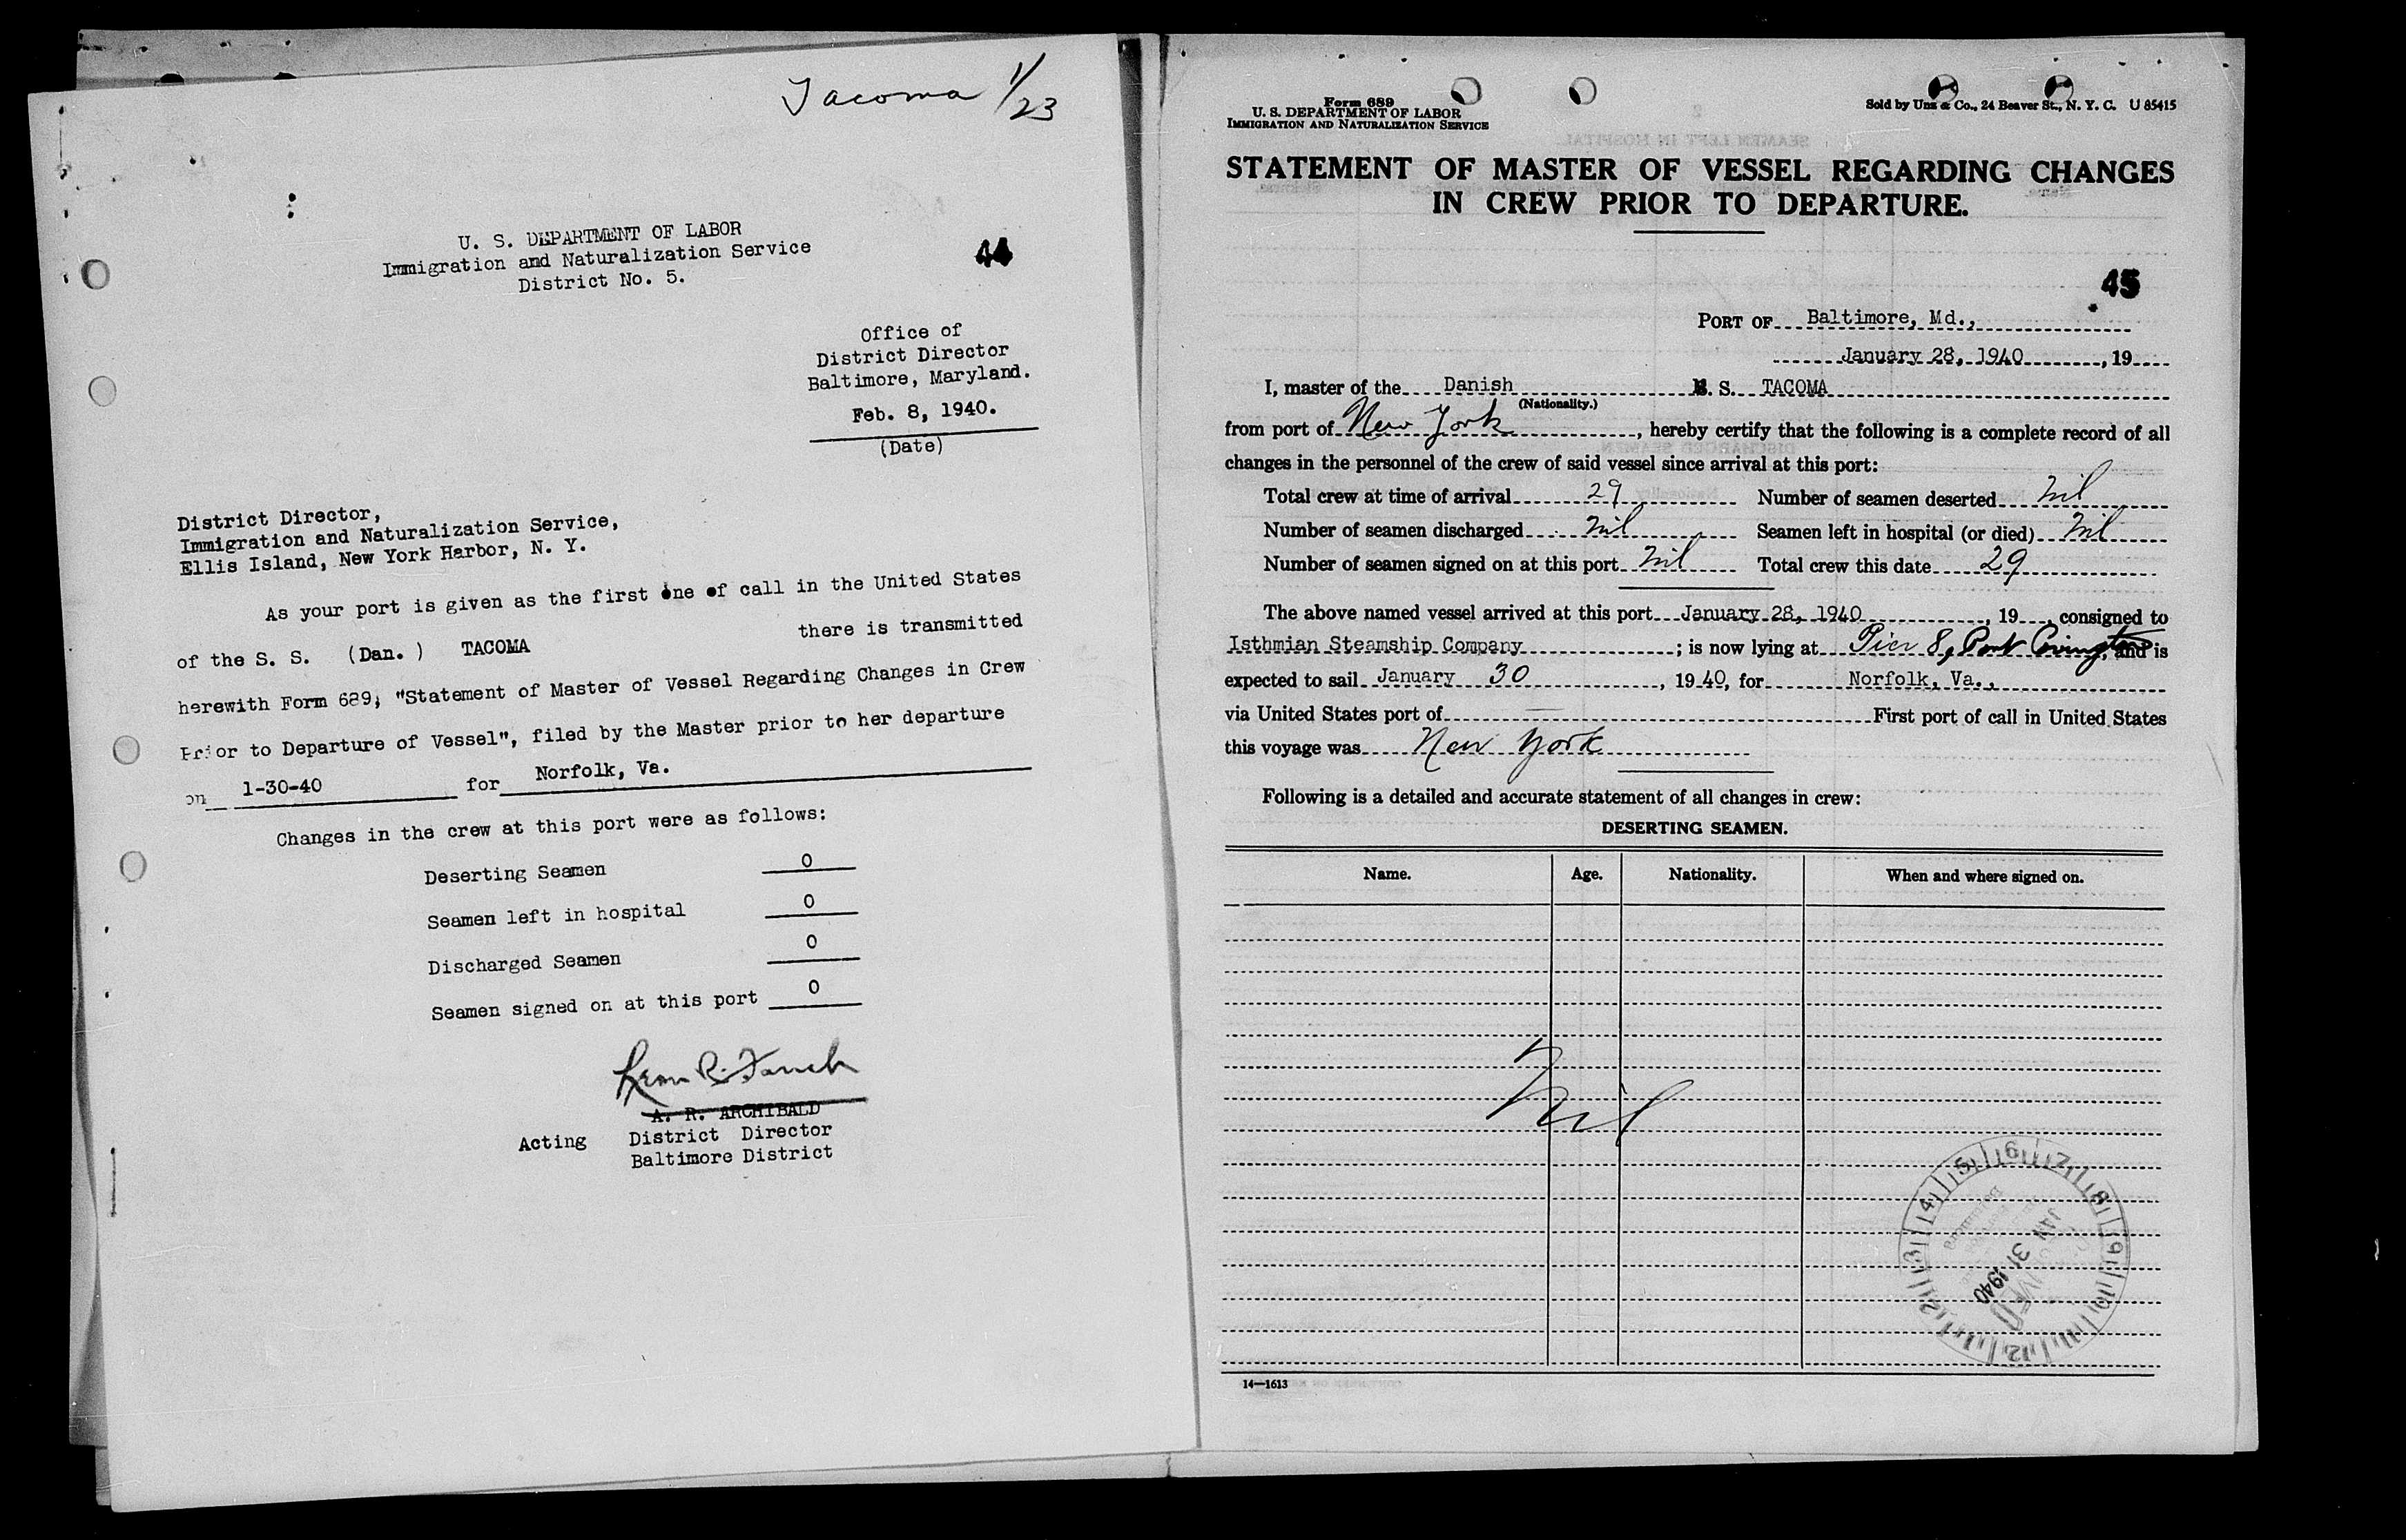 Tacoma 1/23
U. S. DEPARTMENT OF LABOR
Immigration and Naturalization Service
District No. 5.
44
Office of
District Director
Baltimore, Maryland.
Feb. 8, 1940.
(Date)
District Director,
Immigration and Naturalization Service,
Ellis Island, New York Harbor, N. Y.
As your port is given as the first one of call in the United States
of the S. S. (Dan. ) TACOMA there is transmitted
herewith Form 689, "Statement of Master of Vessel Regarding Changes in Crew
Prior to Departure of Vessel", filed by the Master prior to her departure
on 1-30-40 for Norfolk, Va.
Changes in the crew at this port were as follows:
Deserting Seamen 0
Seamen left in hospital 0
Discharged Seamen 0
Seamen signed on at this port 0
A. R. ARCHIBALD
Acting District Director
Baltimore District
Form 689
U. S. DEPARTMENT OF LABOR
IMMIGRATION AND NATURALIZATION SERVICE
Sold by Unz & Co., 24 Beaver St., N. Y. C. U 85415
STATEMENT OF MASTER OF VESSEL REGARDING CHANGES
IN CREW PRIOR TO DEPARTURE.
45
PORT OF Baltimore, Md.,
January 28, 1940, 19
I, master of the Danish M. S. TACOMA
(Nationality.)
from port of New York, hereby certify that the following is a complete record of all
changes in the personnel of the crew of said vessel since arrival at this port:
Total crew at time of arrival 29 Number of seamen deserted nil
Number of seamen discharged nil Seamen left in hospital (or died) nil
Number of seamen signed on at this port nil Total crew this date 29
The above named vessel arrived at this port January 28, 1940, 19, consigned to
Isthmian Steamship Company; is now lying at Pier 8, Port Covington, and is
expected to sail January 30, 1940, for Norfolk, Va.,
via United States port of — First port of call in United States
this voyage was New York
Following is a detailed and accurate statement of all changes in crew:
DESERTING SEAMEN.
Name. Age. Nationality. When and where signed on.
Nil
JAN 31 1940
14—1613